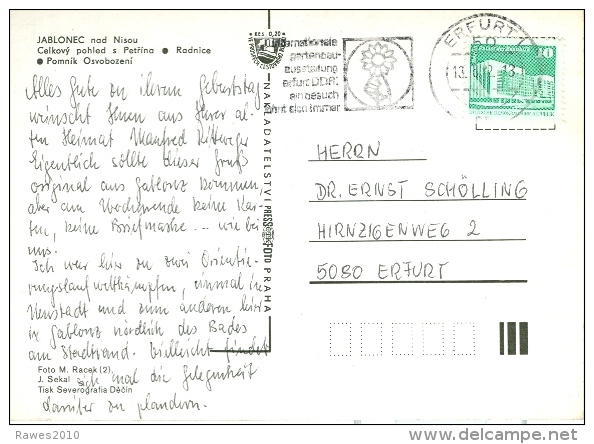 JABLONEC nad Nisou
Celkový pohled s Petřína ● Radnice
● Pomník Osvobození
Kčs 0,20
Internationale
gartenbau-
ausstellung
erfurt DDR:
ein besuch
lohnt sich immer
ERFURT
50
13.
10
NAKLADATELSTVÍ PRESSFOTO PRAHA
Alles Gute zu ihrem Geburtstag
wünscht Ihnen aus Ihrer al-
ten Heimat Manfred
Eigentlich sollte dieser Gruß
original aus Gablonz kommen,
aber am Wochenende keine Kar-
ten, keine Briefmarke ... wie bei
uns.
Ich war hier zu zwei Orientie-
rungslaufwettkämpfen, einmal in
Neustadt und zum anderen hier
in Gablonz nördlich des Bades
am Stadtrand. Vielleicht findet
sich mal die Gelegenheit
darüber zu plaudern.
Foto M. Racek (2)
J. Sekal
Tisk Severografia Děčín
HERRN
DR. ERNST SCHÖLLING
HIRNZIGENWEG 2
5080 ERFURT
Rawes2010
delcampe.net